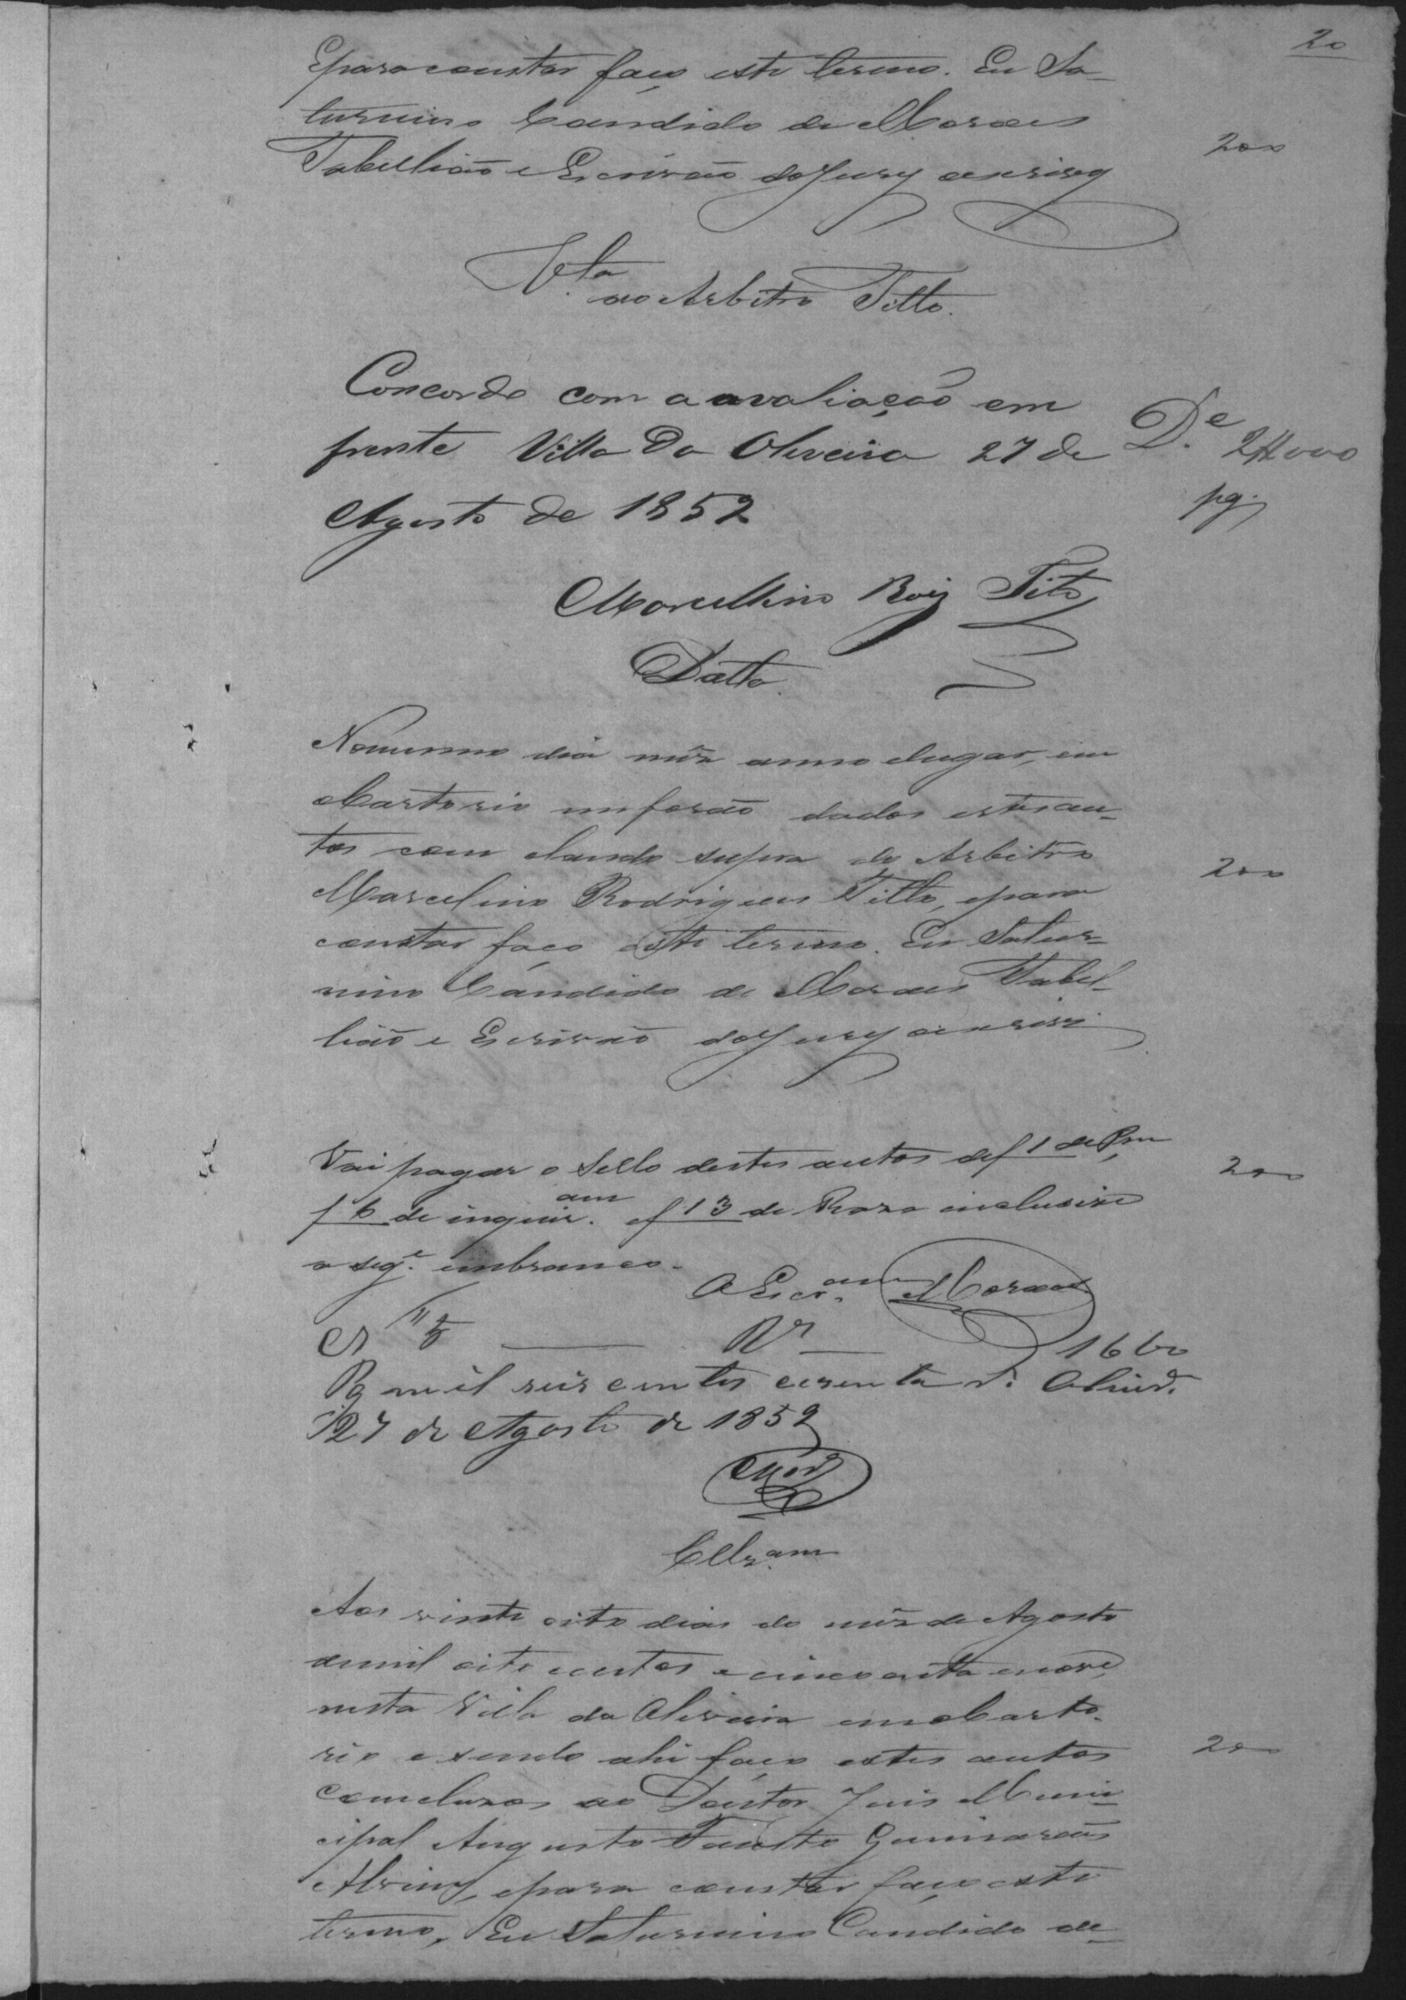 20
E para constar faço este termo. Eu Sa-
turnino Candido de Moraes
Tabellião e Escrivão do Jury oescrivy
200
V.ta
ao Arbitro Titto.
Concordo com a avaliação em
frente Villa Da Oliveira 27 de
Agosto de 1859
D.e 2#000
pg.
Marcellino Roiz Tito
Datta
No mesmo dia mêz anno e lugar, em
Cartorio me forão dados estes au-
tos com o laudo supra do Arbitro
Marcelino Rodrigues Titto, e para
constar faço este termo. Eu Satur-
nino Candido de Moraes Tabel-
lião e Escrivão do Jury oescrivi
200
Vai pagar o Sello destes autos def 1 de
f 6 de inquir.am ef 13 de Raza inclusive
o seg.e embranco.
200
O Escr.am Moraes
N 5 R.s 1660
Pg mil seis centos e secenta r.s Oliv.ra
27 de Agosto de 1859
Clz.am
Aos vinte oito dias do mêz de Agosto
de mil oito centos e cincoenta e nove,
nesta Villa da Oliveira em Carto-
rio e sendo ahi faço estes autos
concluzos ao Doutor Juis Muni-
cipal Augusto Fausto Guimarães
Alvim, e para constar faço este
termo, Eu Saturnino Candido de
200